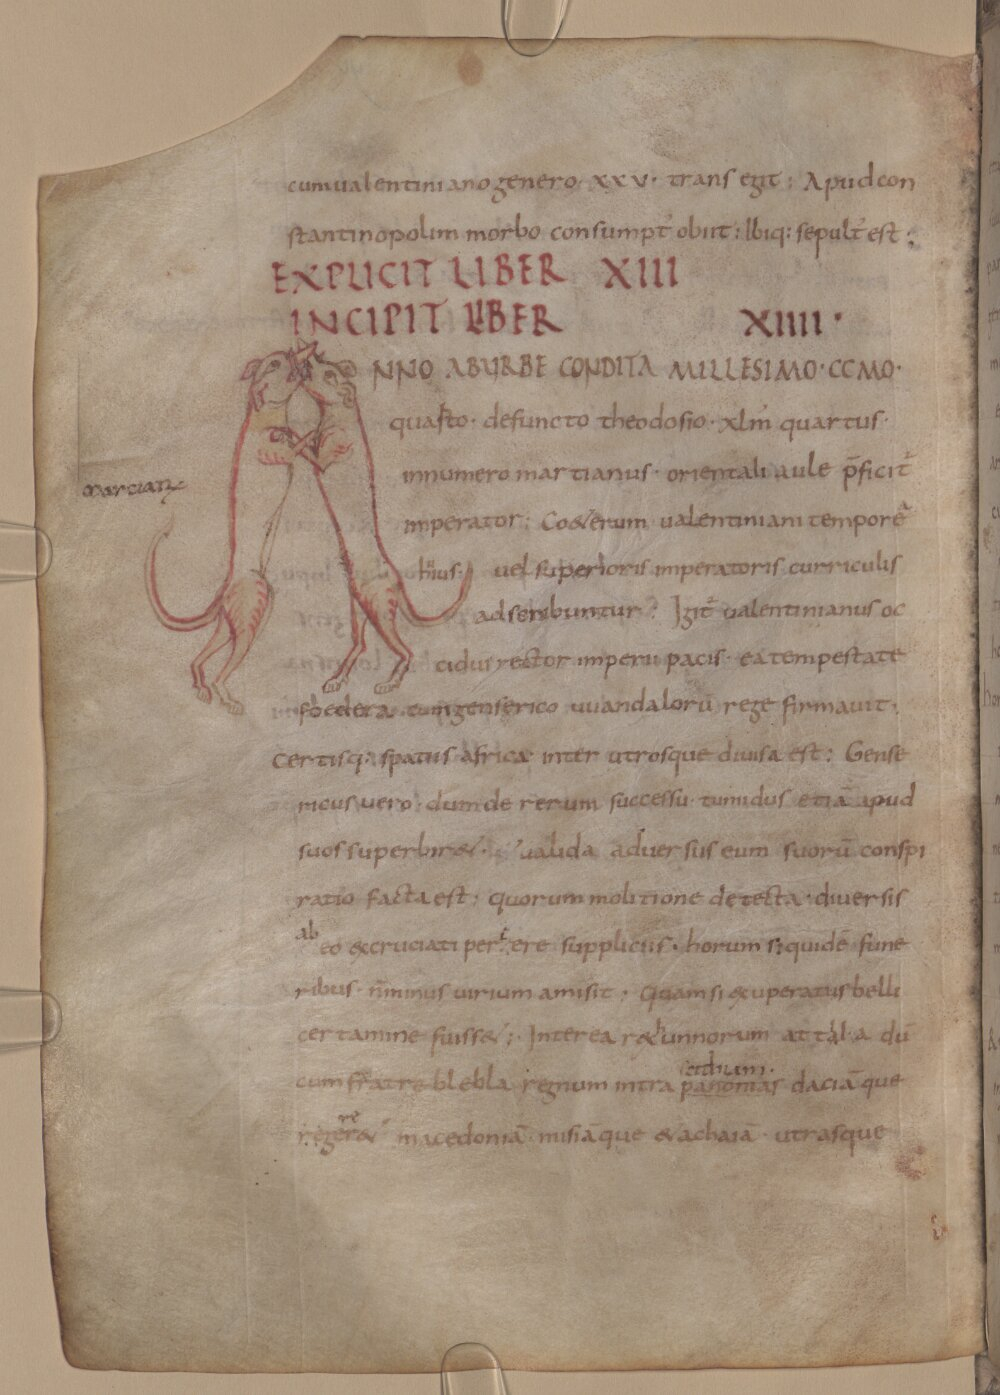 cumualentiniano genero · xxv · transegit : Apud con
stantinopolim morbo consumpt᾽ obiit : Ibiq: sepult᾽ est :
EXPLICIT LIBER XIII
INCIPIT LIBER XIIII ·
NNO ABURBE CONDITA MILLESIMO · CCMO ·
quarto · defuncto theodosio · xlm quartus ·
innumero martianus · orientali aule p̄ficit᾽
imperator : Co&erum ualentiniani tempore
huius · uel superioris imperatoris curriculis
adscribuntur : Igit᾽ ualentinianus oc
cidus rector imperii pacis · ea tempestate
foedera cum genserico uuandalorū rege firmauit ·
Certisq; spatiis africa inter utrosque diuisa est : Gense
ricus uero · dum de rerum successu tumidus etiā apud
suos superbir& · ualida aduersus eum suorū conspi
ratio facta est ; quorum molitione detecta · diuersis
ab
eo excruciati periere suppliciis · horum siquidē fune
ribus · n̄minus uirium amisit ; Quam si exuperatus belli
certamine fuiss& ; Interea rex hunnorum attila dū
cum fratre blebla regnum intra panonias daciāque
re
reger& macedoniā · misiāque & achaiā · utrasque